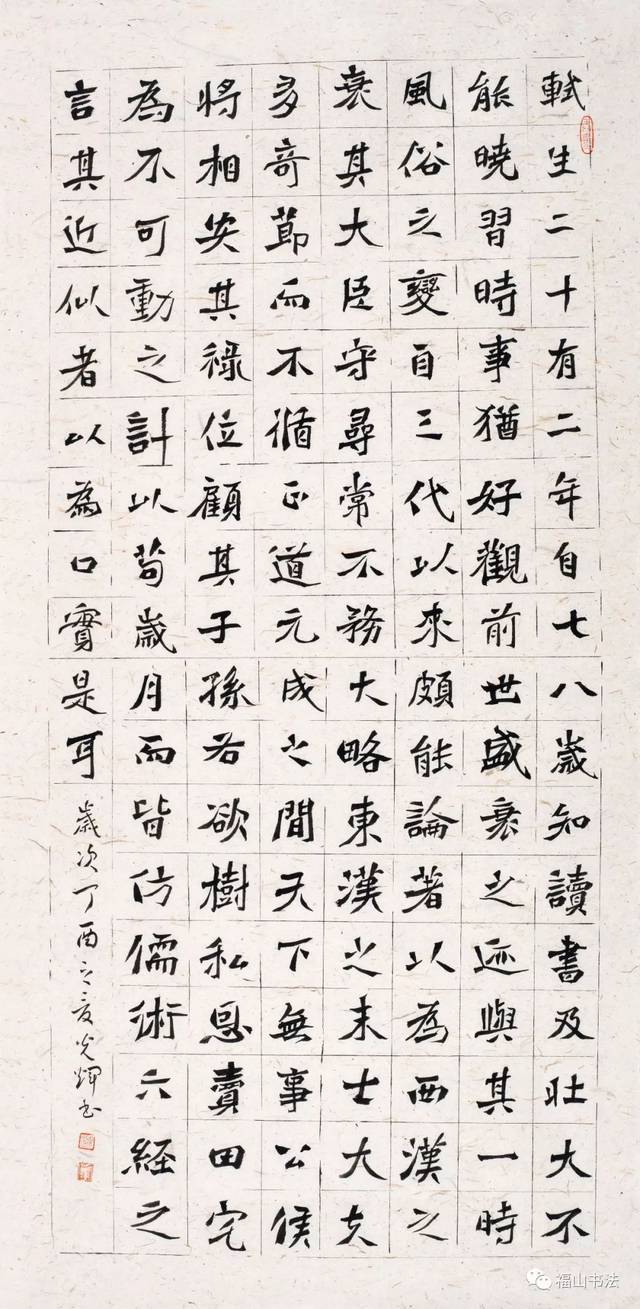 軾生二十有二年自七八歲知讀書及壯大不
能曉習時事猶好觀前世盛衰之迹與其一時
風俗之變自三代以來頗能論著以為西漢之
衰其大臣守尋常不務大略東漢之末士大夫
多奇節而不循正道元成之間天下無事公侯
將相安其祿位顧其子孫若欲樹私恩賣田宅
為不可動之計以苟歲月而皆仿儒術六經之
言其近似者以為口實是耳
歲次丁酉之夏光輝書
福山书法